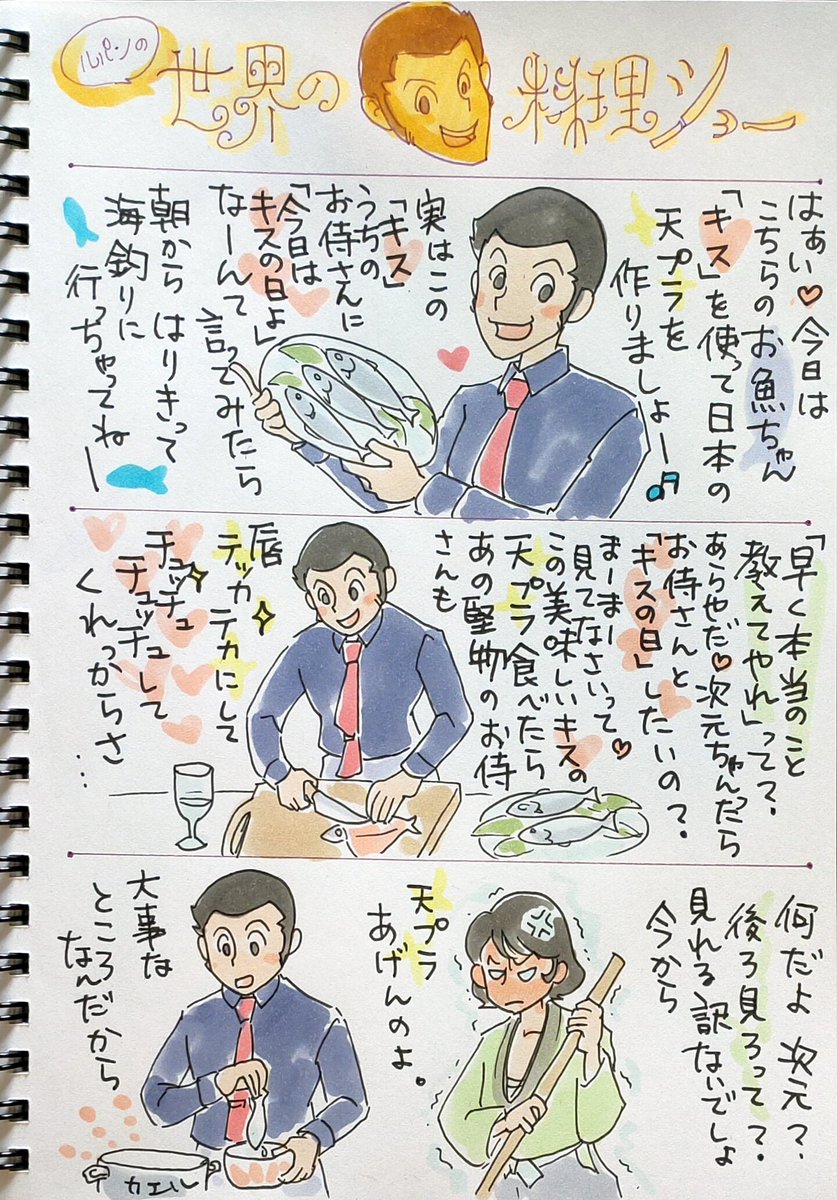 ルパンの
世界の料理ショー
はぁい♥今日は
こちらのお魚ちゃん
「キス」を使って日本の
天プラを
作りましょー♪
実はこの
「キス」
うちの
お侍さんに
「今日は
キスの日よ」
なーんて
言ってみたら
朝から はりきって
海釣りに
行っちゃってねー
「早く本当のこと
教えてやれ」って?
あらやだ♥次元ちゃんったら
お侍さんと
「キスの日」したいの?
まーまー
見てなさいって♥
この美味しいキスの
天プラ食べたら
あの堅物のお侍
さんも
唇
テッカテカにして
チュッチュ
チュッチュして
くれっからさ…
何だよ 次元?
後ろ見ろって?
見れる訳ないでしょ
今から
天プラ
あげんのよ。
大事な
ところ
なんだから
カエル